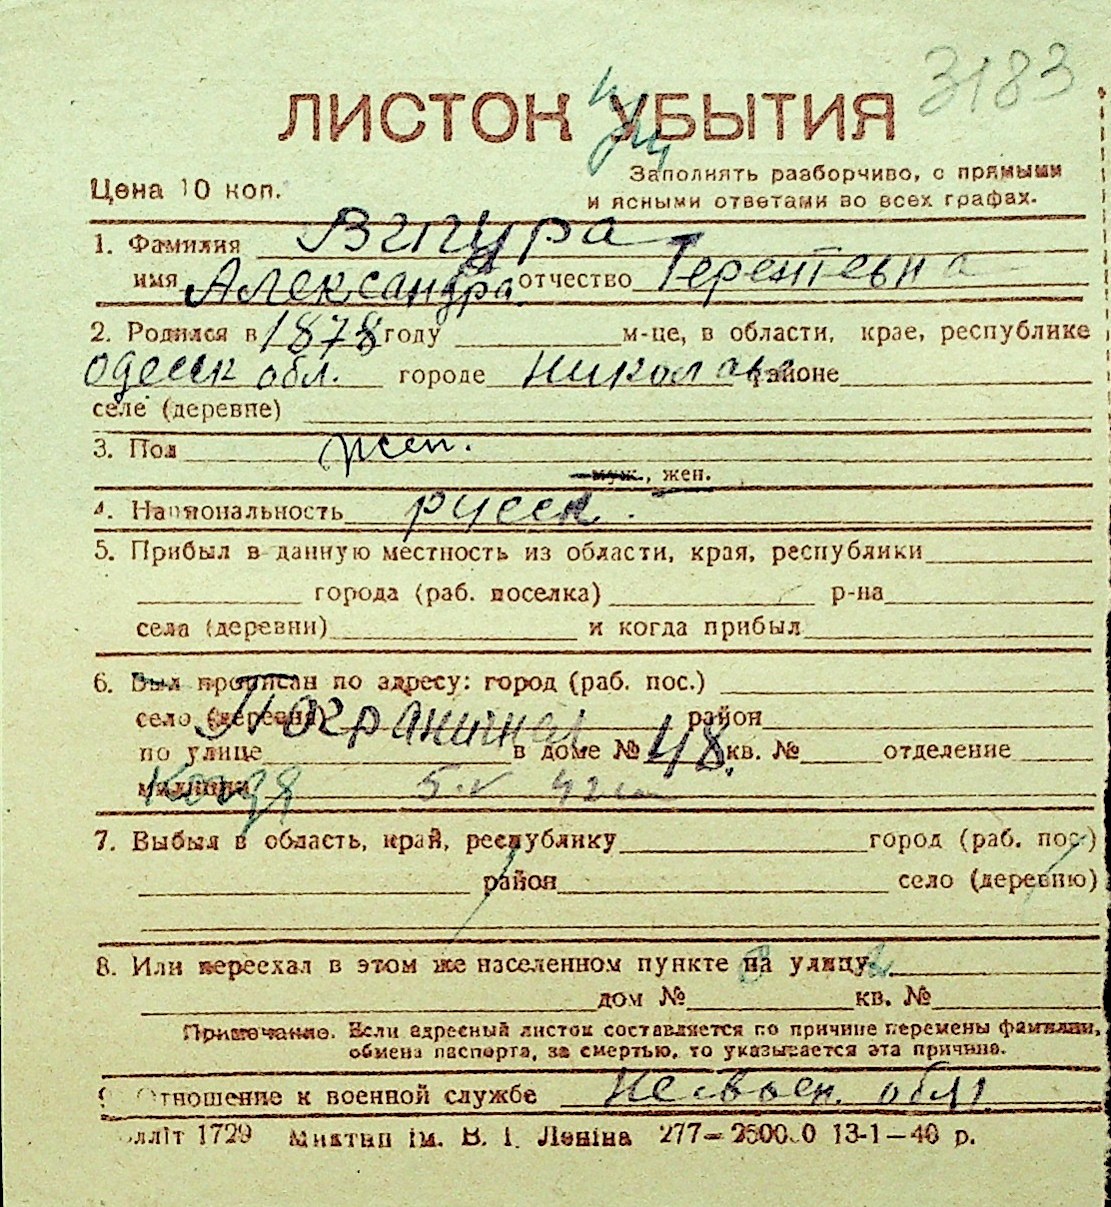 3183
ЛИСТОК УБЫТИЯ
Цена 10 коп.
Заполнять разборчиво, с прямыми
и ясными ответами во всех графах.
1. Фамилия Вгпура
имя Александра отчество Терентевна
2. Родился в 1878 году м-це, в области, крае, республике
Одесск обл. городе Николаев районе
селе (деревне)
3. Пол жен.
муж., жен.
4. Национальность русск.
5. Прибыл в данную местность из области, края, республики
города (раб. поселка) р-на
села (деревни) и когда прибыл
6. Был прописан по адресу: город (раб. пос.)
село (деревня) Пограничная район
по улице в доме № 48 кв. № отделение
милиции
7. Выбыл в область, край, республику город (раб. пос.)
район село (деревню)
8. Или переехал в этом же населенном пункте на улицу
дом № кв. №
Примечание. Если адресный листок составляется по причине перемены фамилии,
обмена паспорта, за смертью, то указывается эта причина.
Отношение к военной службе не воен. обяз
1729 ім. В. І. Леніна 13-1—40 р.